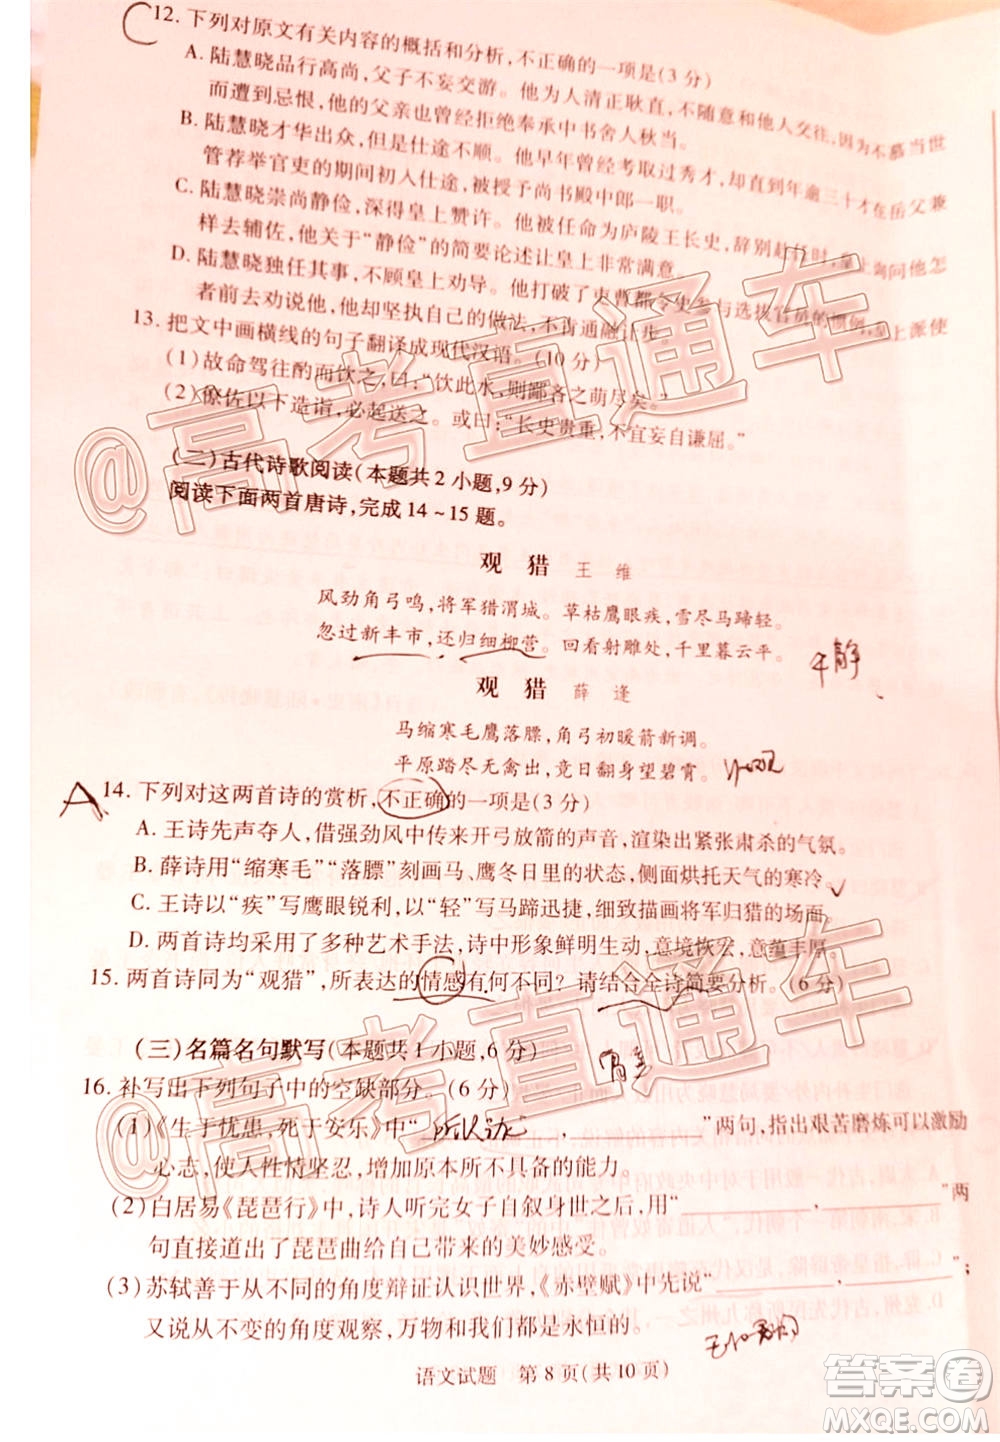 C
12. 下列对原文有关内容的概括和分析,不正确的一项是(3 分)
A. 陆慧晓品行高尚,父子不妄交游。他为人清正耿直,不随意和他人交往,因为不慕当世
而遭到忌恨,他的父亲也曾经拒绝奉承中书舍人秋当。
B. 陆慧晓才华出众,但是仕途不顺。他早年曾经考取过秀才,却直到年逾三十才在岳父兼
管荐举官吏的期间初入仕途,被授予尚书殿中郎一职。
C. 陆慧晓崇尚静俭,深得皇上赞许。他曾经作为庐陵王长史,辞别赴任时,皇上询问他怎
样去辅佐,他关于“静俭”的简要论述让皇上非常满意。
D. 陆慧晓独任其事,不顾皇上劝导。他打破了吏曹都令史参与选拔官员的惯例,皇上派使
者前去劝说他,他却坚执自己的做法,不肯通融让步。
13. 把文中画横线的句子翻译成现代汉语。(10 分)
(1)故命驾往酌而饮之,曰:“饮此水,则鄙吝之萌尽矣。”
(2)僚佐以下造诣,必起送之。或曰:“长史贵重,不宜妄自谦屈。”
(二)古代诗歌阅读(本题共 2 小题,9 分)
阅读下面两首唐诗,完成 14~15 题。
观 猎 王 维
风劲角弓鸣,将军猎渭城。草枯鹰眼疾,雪尽马蹄轻。
忽过新丰市,还归细柳营。回看射雕处,千里暮云平。
观 猎 薛 逢
马缩寒毛鹰落膘,角弓初暖箭新调。
平原踏尽无禽出,竟日翻身望碧霄。
A.
14. 下列对这两首诗的赏析,不正确的一项是(3 分)
A. 王诗先声夺人,借强劲风中传来开弓放箭的声音,渲染出紧张肃杀的气氛。
B. 薛诗用“缩寒毛”“落膘”刻画马、鹰冬日里的状态,侧面烘托天气的寒冷。
C. 王诗以“疾”写鹰眼锐利,以“轻”写马蹄迅捷,细致描画将军归猎的场面。
D. 两首诗均采用了多种艺术手法,诗中形象鲜明生动,意境恢宏,意蕴丰厚。
15. 两首诗同为“观猎”,所表达的情感有何不同?请结合全诗简要分析。(6 分)
(三)名篇名句默写(本题共 1 小题,6 分)
16. 补写出下列句子中的空缺部分。(6 分)
(1)《生于忧患,死于安乐》中“ , ”两句,指出艰苦磨炼可以激励
心志,使人性情坚忍,增加原本所不具备的能力。
(2)白居易《琵琶行》中,诗人听完女子自叙身世之后,用“ , ”两
句直接道出了琵琶曲给自己带来的美妙感受。
(3)苏轼善于从不同的角度辩证认识世界,《赤壁赋》中先说“ , ”;
又说从不变的角度观察,万物和我们都是永恒的。
语文试题 第 8 页(共 10 页)
@高考直通车
@高考直通车
答案圈
MXQE.COM